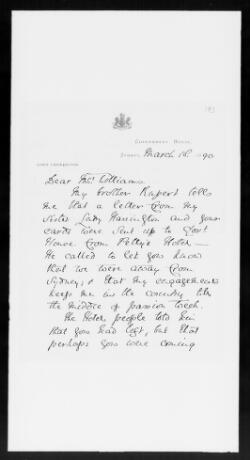 Government House,
Sydney. March 18. 1890
Dear Mrs. Williams
My brother Rupert tells
me that a letter from my
sister Lady Harrington and your
cards were sent up to Govt
House from Petty's Hotel —
He called to let you know
that we were away from
Sydney & that my engagements
keep me in the country till
the middle of passion week.
The Hotel people told him
that you had left, but that
perhaps you were coming